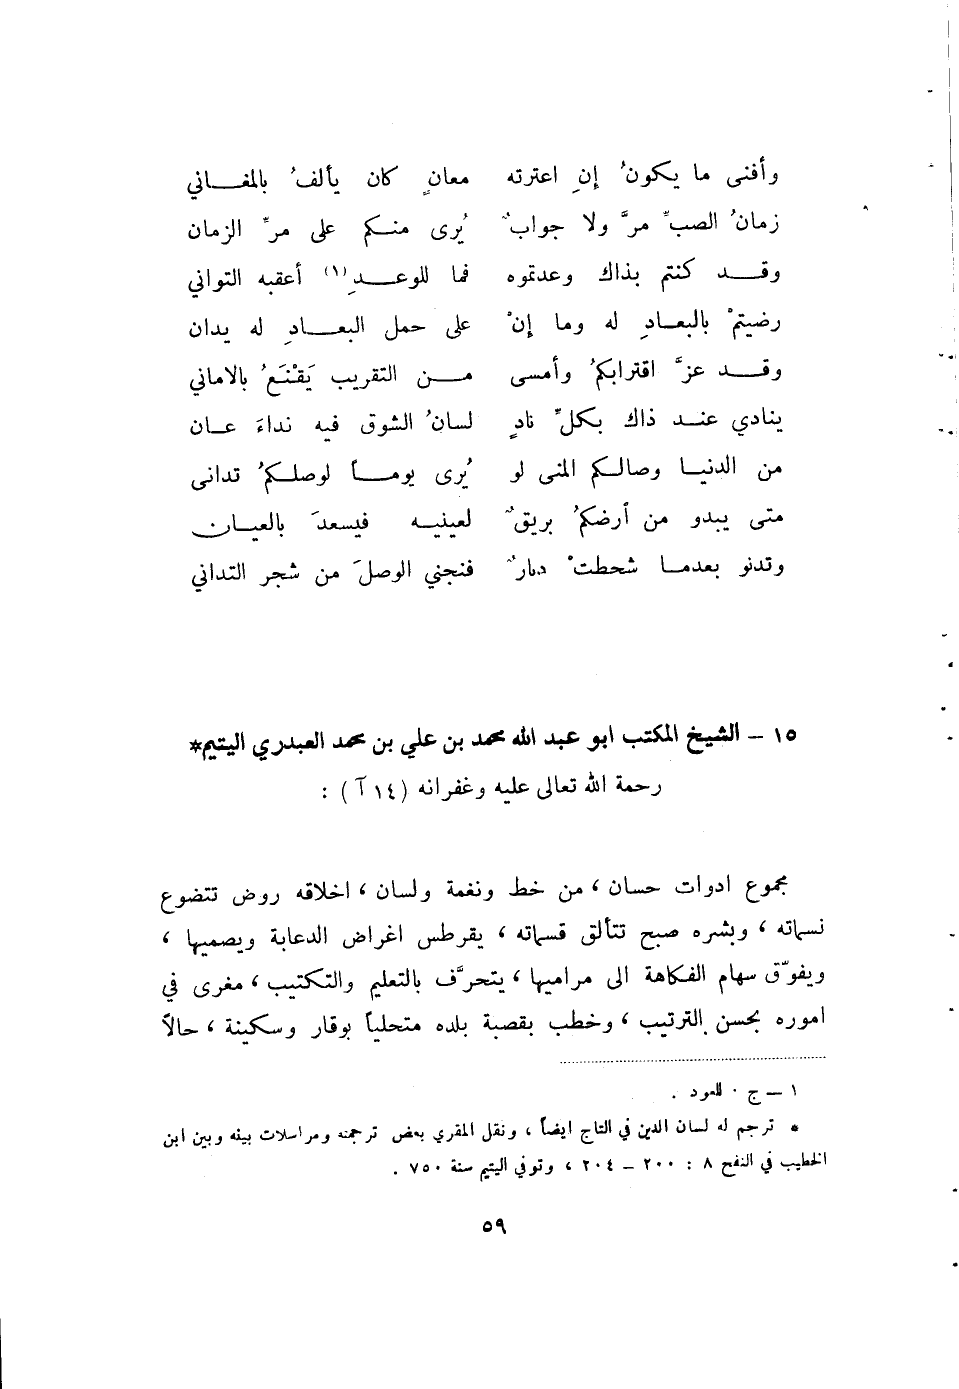 وأفنى ما يكونُ إنِ اعترته معانٍ كان يألفُ بالمغاني
زمانُ الصبِّ مرَّ ولا جوابٌ يُرى منكم على مرِّ الزمان
وقد كنتم بذاك وعدتموه فما للوعدِ(١) أعقبه التواني
رضيتمْ بالبعادِ له وما إنْ على حمل البعادِ له يدان
وقد عزَّ اقترابكمُ وأمسى من التقريب يَقْنَعُ بالاماني
ينادي عند ذاك بكلِّ نادٍ لسانُ الشوق فيه نداءَ عان
من الدنيا وصالكم المنى لو يُرى يوماً لوصلكمُ تدانى
متى يبدو من أرضكمُ بريقٌ لعينيه فيسعدَ بالعيان
وتدنو بعدما شحطتْ دارٌ فنجني الوصلَ من شجر التداني
١٥ – الشيخ المكتب ابو عبد الله محمد بن علي بن محمد العبدري اليتيم*
رحمة الله تعالى عليه وغفرانه (١٤ آ) :
مجموع ادوات حسان ، من خط ونغمة ولسان ، اخلاقه روض تتضوع
نسماته ، وبشره صبح تتألق قسماته ، يقرطس اغراض الدعابة ويصميها ،
ويفوّق سهام الفكاهة الى مراميها ، يتحرَّف بالتعليم والتكتيب ، مغرى في
اموره بحسن الترتيب ، وخطب بقصبة بلده متحلياً بوقار وسكينة ، حالاً
١ – ج . للعود .
* ترجم له لسان الدين في التاج ايضاً ، ونقل المقري بعض ترجمته ومراسلات بينه وبين ابن
الخطيب في النفح ٨ : ٢٠٠ – ٢٠٤ ، وتوفي اليتيم سنة ٧٥٠ .
٥٩